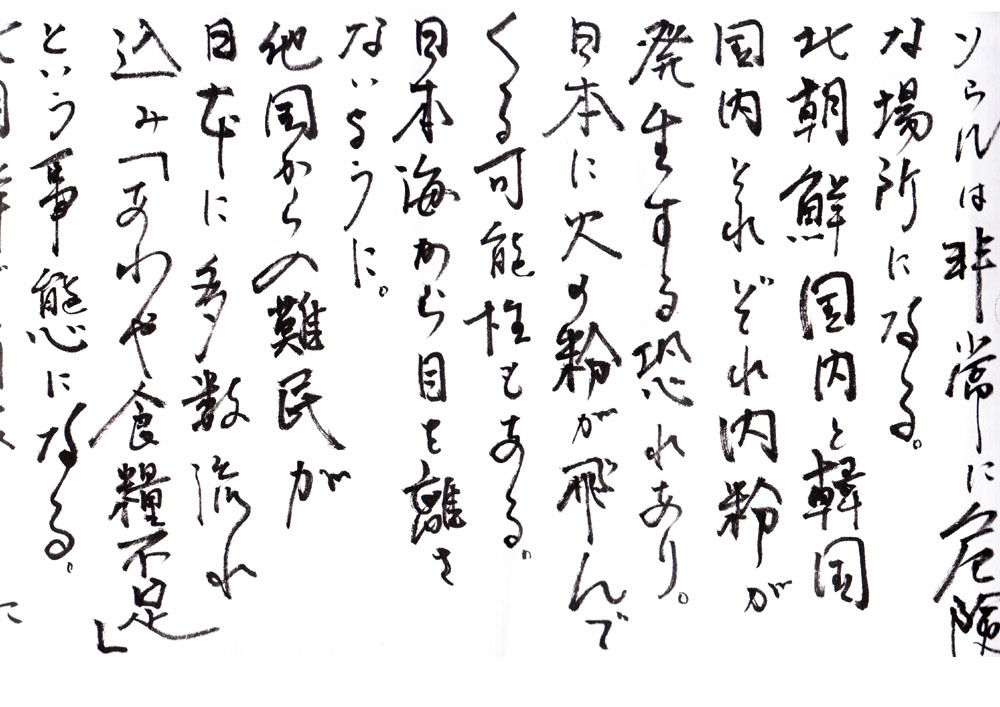 は非常に危険
な場所になる。
北朝鮮国内と韓国
国内それぞれ内粉が
発生する恐れあり。
日本に火の粉が飛んで
くる可能性もある。
日本海から目を離さ
ないように。
他国からの難民が
日本に多数流れ
込み「あわや食糧不足」
という事態になる。